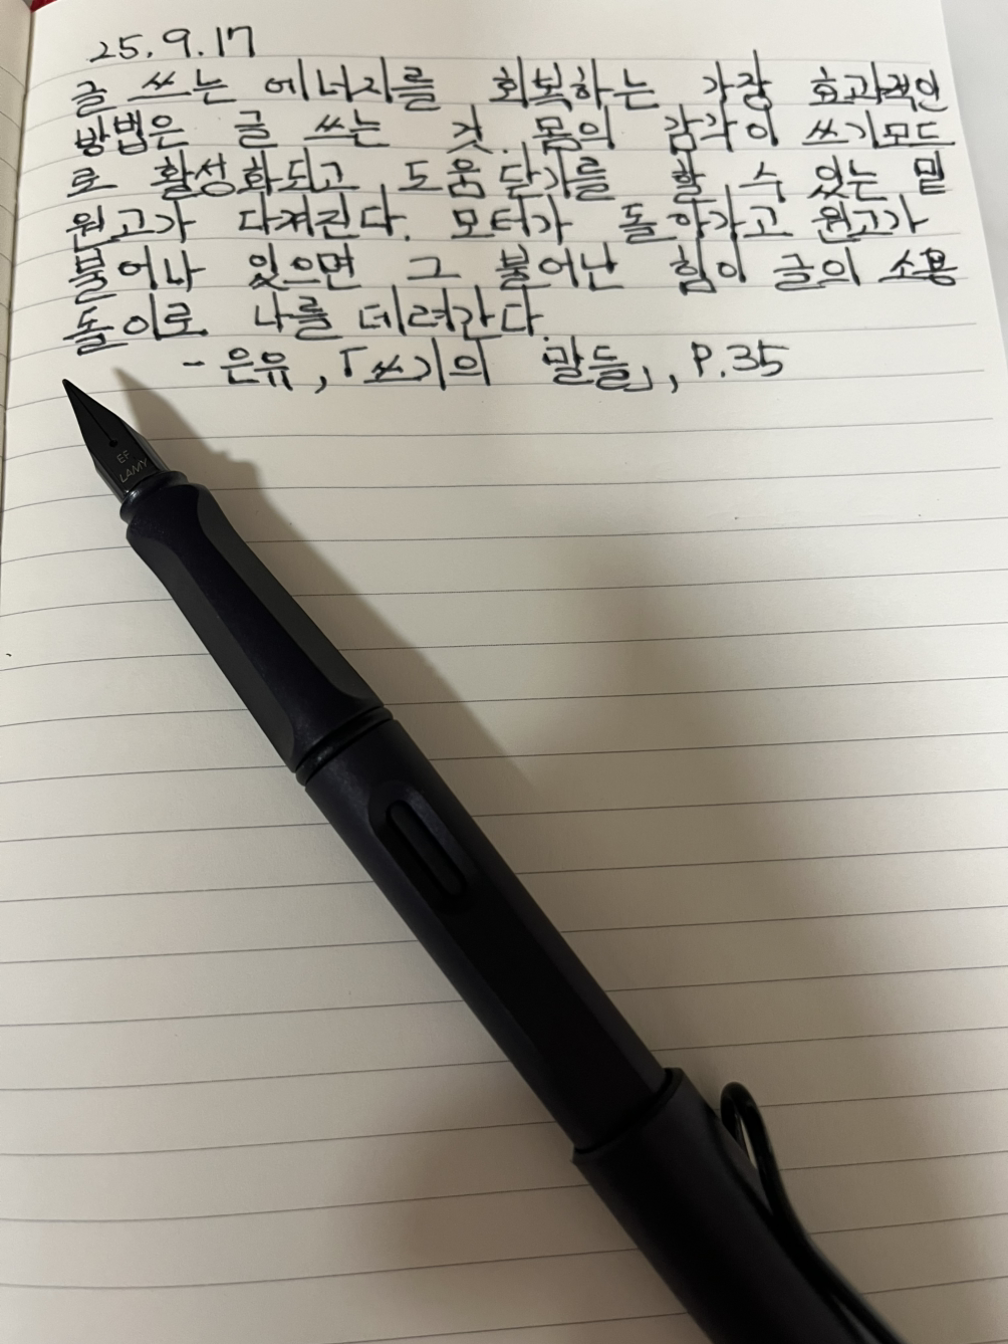 25.9.17
글 쓰는 에너지를 회복하는 가장 효과적인
방법은 글 쓰는 것. 몸의 감각이 쓰기모드
로 활성화되고 도움닫기를 할 수 있는 밑
원고가 다져진다. 모터가 돌아가고 원고가
불어나 있으면 그 불어난 힘이 글의 소용
돌이로 나를 데려간다.
- 은유, 「쓰기의 말들」, P.35
EF
LAMY